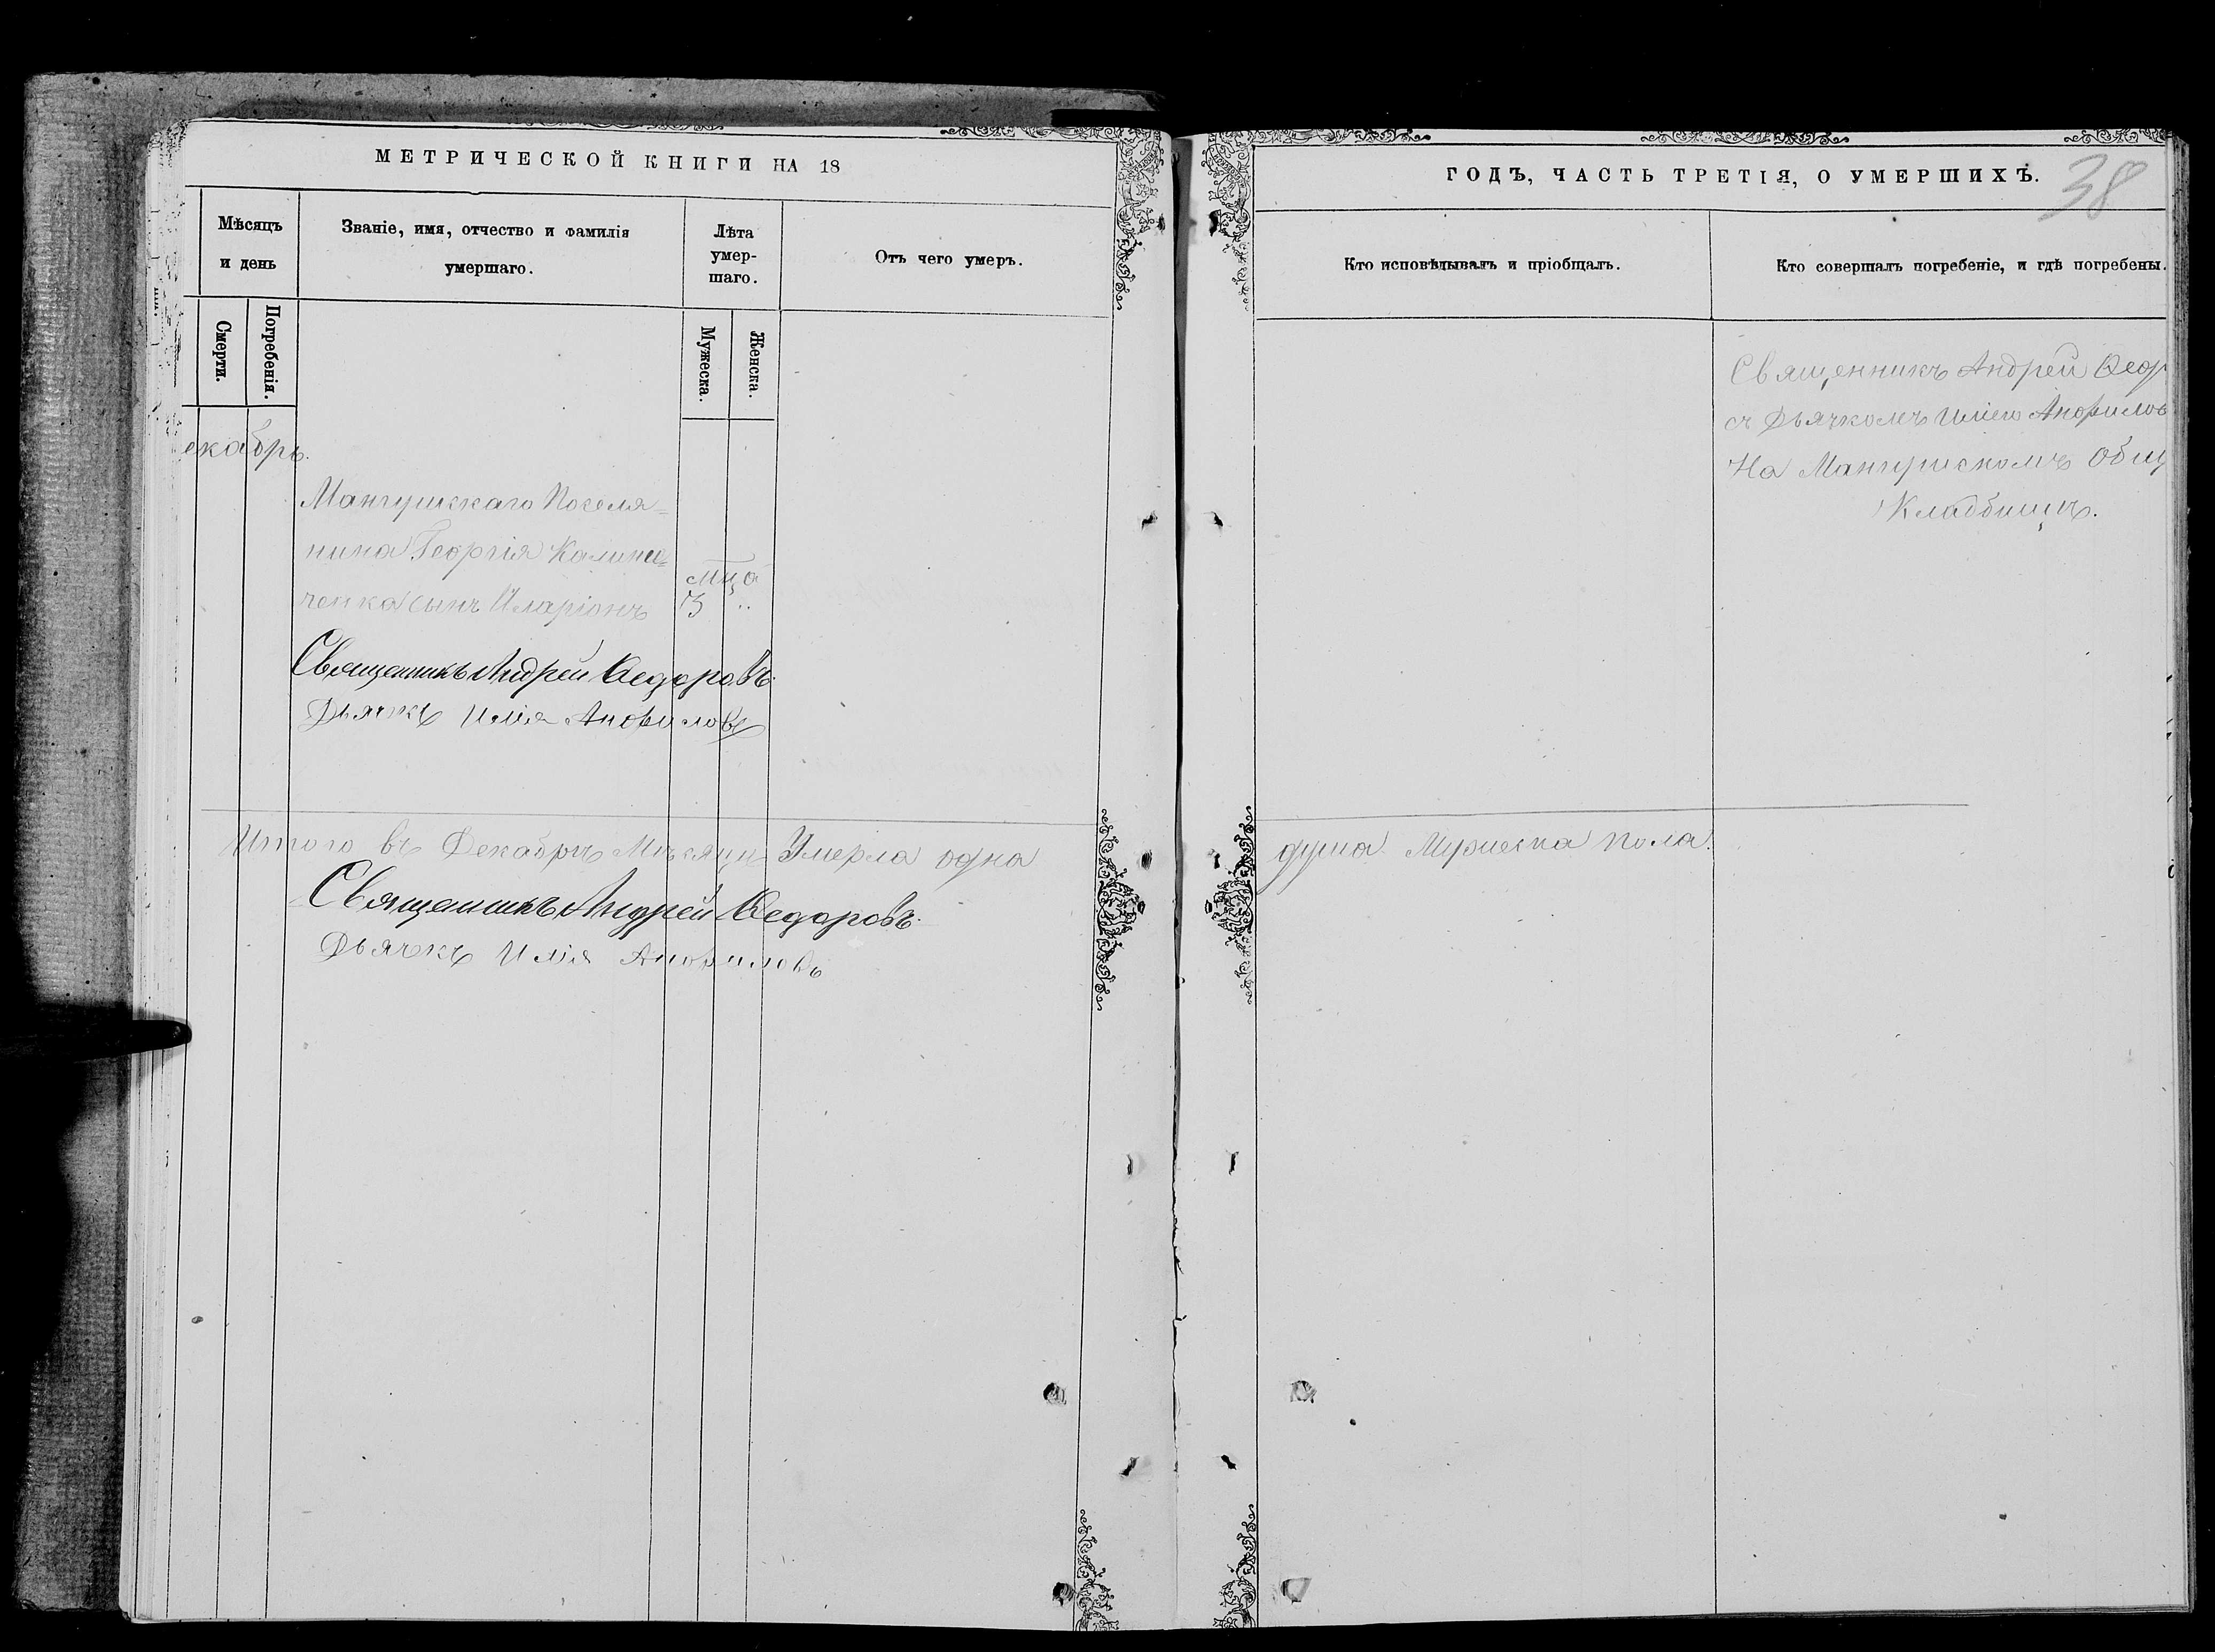 МЕТРИЧЕСКОЙ КНИГИ НА 18
ГОДЪ, ЧАСТЬ ТРЕТІЯ, О УМЕРШИХЪ.
38
Мѣсяцъ
и день
Званіе, имя, отчество и фамилія
умершаго.
Лѣта
умер-
шаго.
Отъ чего умеръ.
Кто исповѣдывалъ и пріобщалъ.
Кто совершалъ погребеніе, и гдѣ погребены.
Смерти.
Погребенія.
Мужеска.
Женска.
екабрь.
Мангушскаго Поселя=
нина Георгія Калини=
ченка сынъ Иларіонъ
мца
3 "
Священникъ Андрей Ѳедоровъ.
Дьячкъ Илія Анфиловъ
Священникъ Андрей Ѳеор
съ Дьячкомъ Иліею Анфилов
На Мангушскомъ Общ
Кладбищѣ.
Итого въ Декабрѣ Мѣсяцѣ Умерла одна
душа Мужеска пола.
Священникъ Андрей Ѳедоровъ.
Дьячекъ Илія Анфиловъ